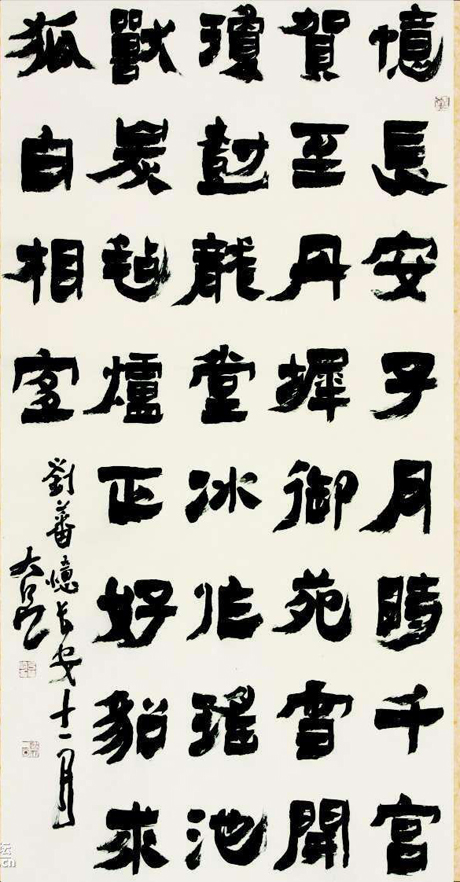 憶長安子月時千官
賀至丹墀御苑雪開
瓊尌龍堂冰作瑤池
獸炭氈爐正好貂求
狐白相宜
劉蕃憶長安十一月
坛
.cn